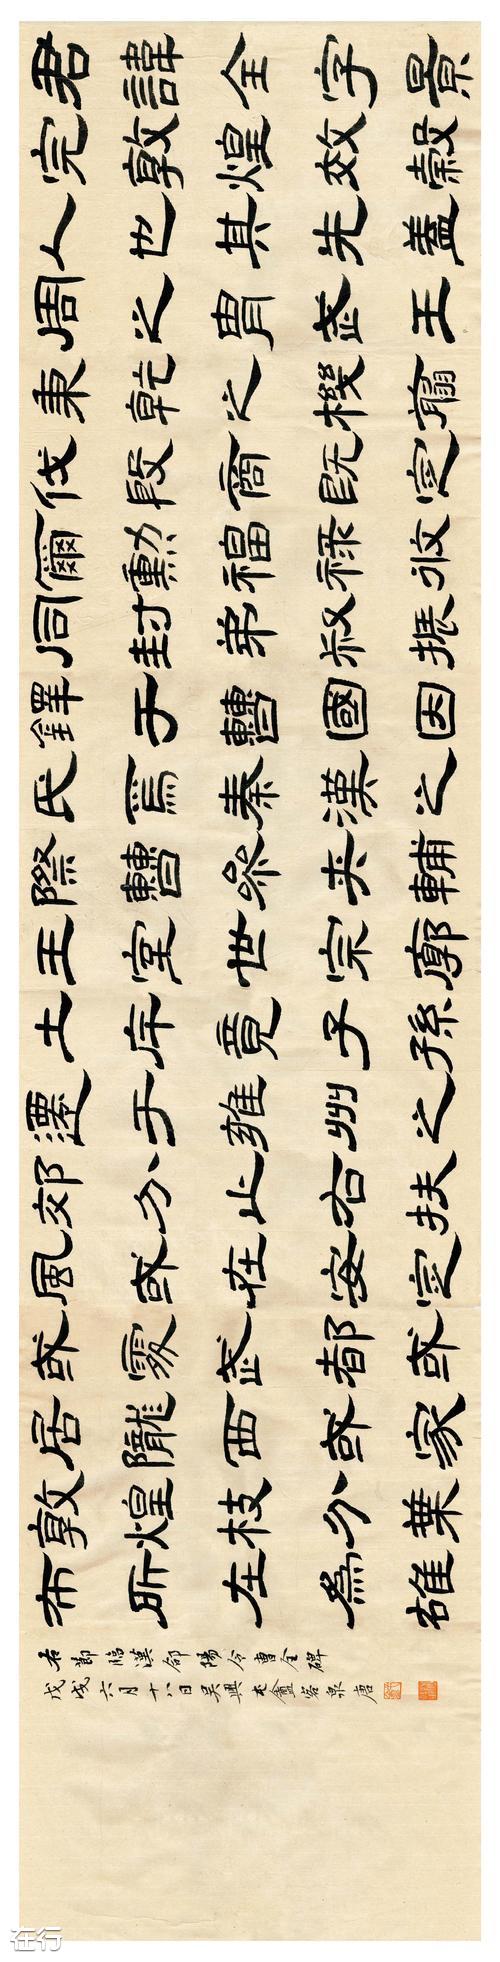 君諱全字景
完敦煌效穀
人也其先蓋
周之胄武王
秉乾之機翦
伐段商既定
爾勳福祿攸
同封弟叔振
鐸于曹國因
氏焉秦漢之
際曹參夾輔
王室世宗廓
土斥竟子孫
遷于雍州之
郊分止右扶
風或在安定
或處武都或
居隴西或家
敦煌枝分葉
布所在為雄
右節臨漢郃陽令曹全碑
戊戌六月十八日吳興盦客泉唐
在行